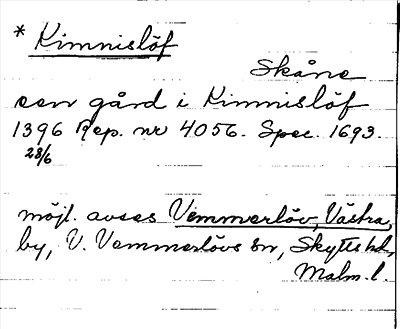 * Kimnislöf
Skåne
een gård i Kimnislöf
1396 Rep. nr 4056. Spec. 1693.
28/6
möjl. avses Vemmerlöv, Västra,
by, V. Vemmerlövs sn, Skytts hd,
Malm. l.